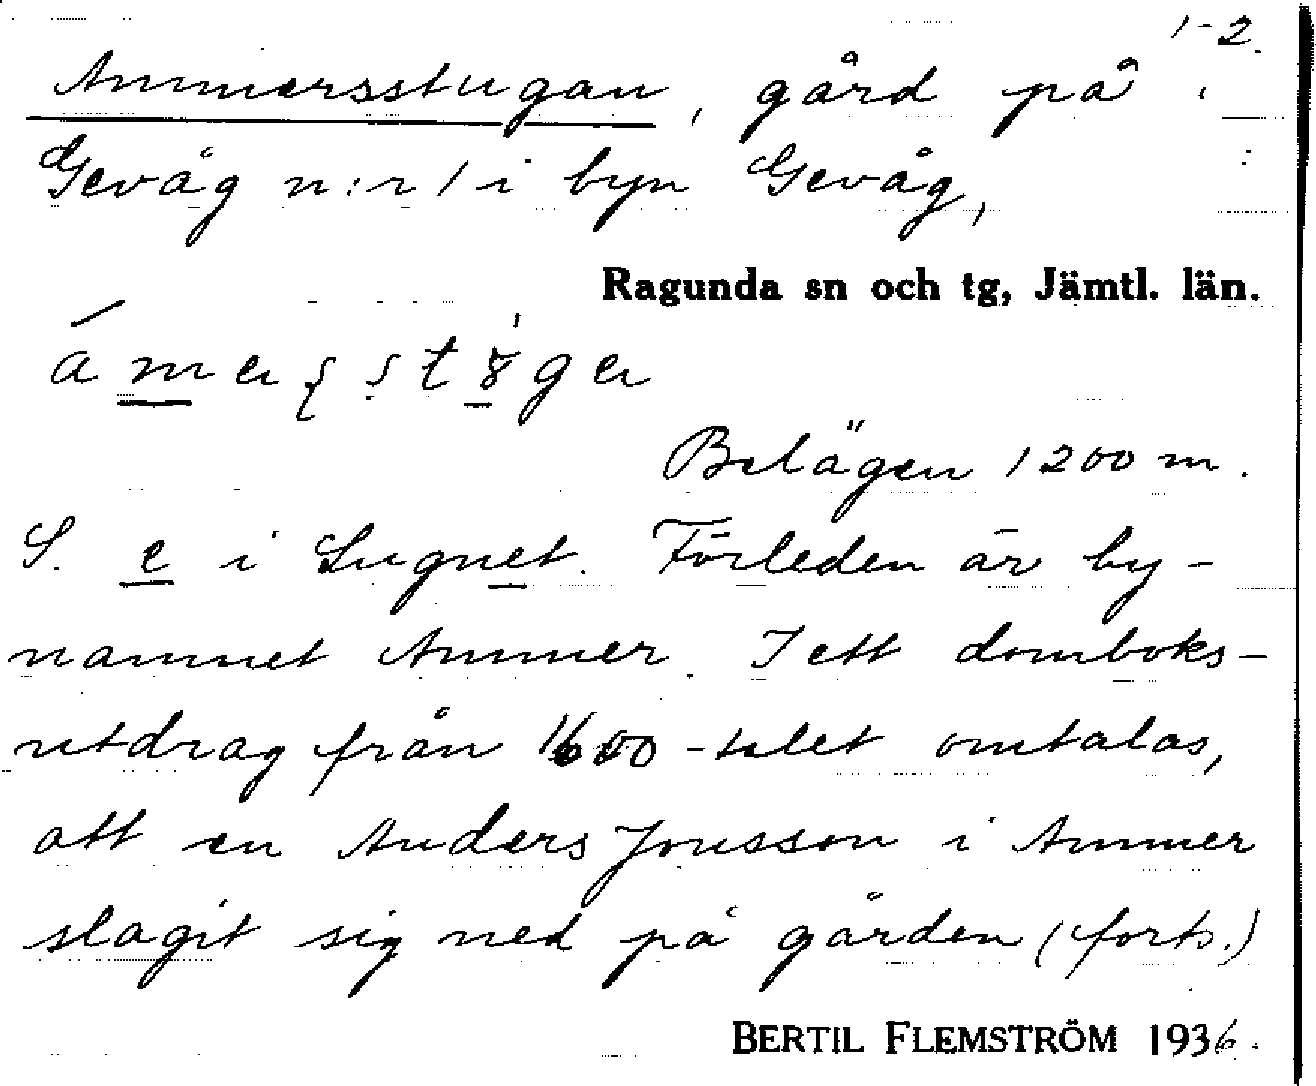 1-2.
Ammersstugan, gård på
Gevåg n:r 1 i byn Gevåg,
Ragunda sn och tg, Jämtl. län.
Belägen 1200 m.
S. e i Lugnet. Förleden är by-
namnet Ammer. I ett domboks-
utdrag från 1600-talet omtalas,
att en Anders Jonsson i Ammer
slagit sig ned på gården (forts.)
BERTIL FLEMSTRÖM 1936.